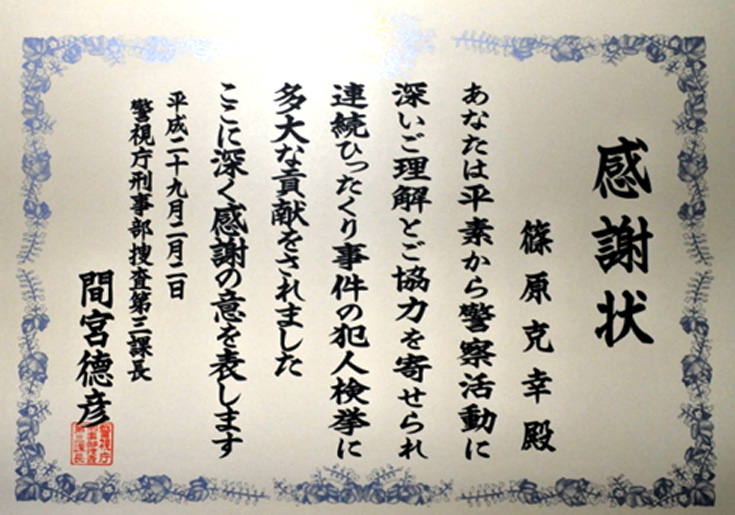 感謝状
篠原克幸殿
あなたは平素から警察活動に
深いご理解とご協力を寄せられ
連続ひったくり事件の犯人検挙に
多大な貢献をされました
ここに深く感謝の意を表します
平成二十九月二月二日
警視庁刑事部捜査第三課長
間宮德彦
警視庁
刑事部捜査
第三課長